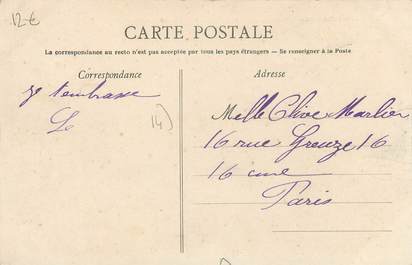 12 €
CARTE POSTALE
La correspondance au recto n'est pas acceptée par tous les pays étrangers — Se renseigner à la Poste
Correspondance
Adresse
je t'embrasse
L
14)
Melle Clive Marlier
16 rue Greuze 16
16 eme
Paris